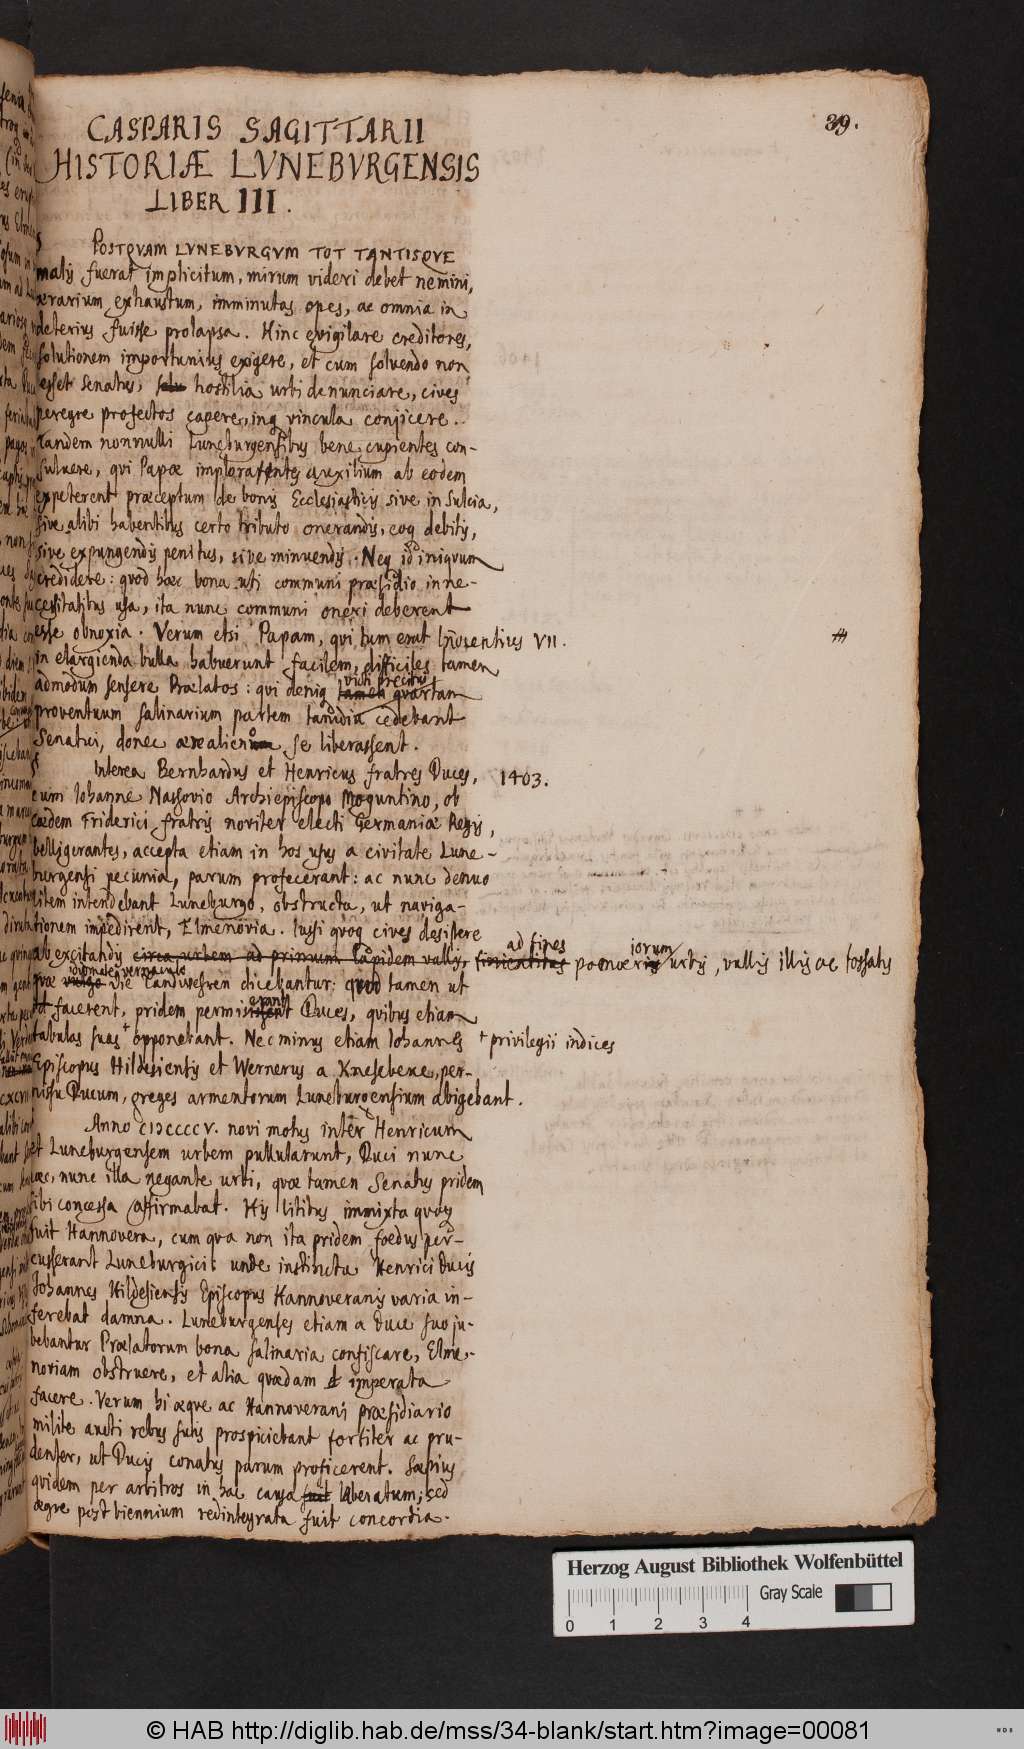 39.
CASPARIS SAGITTARII
HISTORIÆ LVNEBVRGENSIS
LIBER III.
POSTQVAM LVNEBVRGVM TOT TANTISQVE
malis fuerat implicitum, mirum videri debet nemini,
ærarium exhaustum, imminutas opes, ac omnia in
deterius fuisse prolapsa. Hinc evigilare creditores,
solutionem importunius exigere, et cum solvendo non
esset Senatus, hostilia urbi denunciare, cives
peregre profectos capere, inq vincula conjicere.
Tandem nonnulli Luneburgensibus bene cupientes con-
suluere, qui Papæ implorantes auxilium ab eodem
expeterent præceptum de bonis Ecclesiasticis sive in Sulcia,
sive alibi habentibus certo tributo onerandis, eoq debitis,
sive expungendis penitus, sive minuendis. Neq id iniquum
credidere: quod hæc bona uti communi præsidio in ne-
cessitatibus usa, ita nunc communi oneri deberent
esse obnoxia. Verum etsi Papam, qui tum erat Innocentius VII.
in elargienda bulla habuerunt facilem, difficiles tamen
admodum sensere Prælatos: qui deniq victi precibus tamen quartam
proventuum salinarium partem tamdiu cedebant
Senatui, donec ære alieno se liberassent.
Interea Bernhardus et Henricus fratres Duces, 1403.
cum Iohanne Nassovio Archiepiscopo Moguntino, ob
cædem Friderici fratris noviter electi Germaniæ Regis,
belligerantes, accepta etiam in hos usus a civitate Lune-
burgensi pecunia, parum profecerant: ac nunc denuo
litem intendebant Luneburgo, obstructa, ut naviga-
tionem impedirent, Elmenovia. Iussi quoq cives desistere
ab excitandis circa urbem ad primum lapidem vallis, ad fines pomœriorum urbis, vallis illis ac fossatis
quæ idiomate vernaculo vulgo die Landwehren dicebantur: quod tamen ut
facerent, pridem permiserant Duces, quibus etiam
tabulas suas + opponebant. Nec minus etiam Iohannes + privilegii indices
Episcopus Hildesiensis et Wernerus a Knesebeke, per-
missu Ducum, greges armentorum Luneburgensium abigebant.
Anno CIƆCCCCV. novi motus inter Henricum
et Luneburgensem urbem pullularunt, Duci nunc
hæc, nunc illa negante urbi, quæ tamen Senatus pridem
sibi concessa affirmabat. His litibus immixta quoq
fuit Hannovera, cum qua non ita pridem foedus per-
cusserant Luneburgici: unde instinctu Henrici Ducis
Iohannes Hildesiensis Episcopus Hannoveranis varia in-
ferebat damna. Luneburgenses etiam a Duce suo ju-
bebantur Prælatorum bona salinaria confiscare, Elme-
noviam obstruere, et alia quædam imperata
facere. Verum hi æque ac Hannoverani præsidiario
milite aucti rebus suis prospiciebant fortiter ac pru-
denter, ut Ducis conatus parum proficerent. Sæpius
quidem per arbitros in hac causa fuit laboratum; sed
ægre post biennium redintegrata fuit concordia.
Herzog August Bibliothek Wolfenbüttel
Gray Scale
0 1 2 3 4
© HAB http://diglib.hab.de/mss/34-blank/start.htm?image=00081